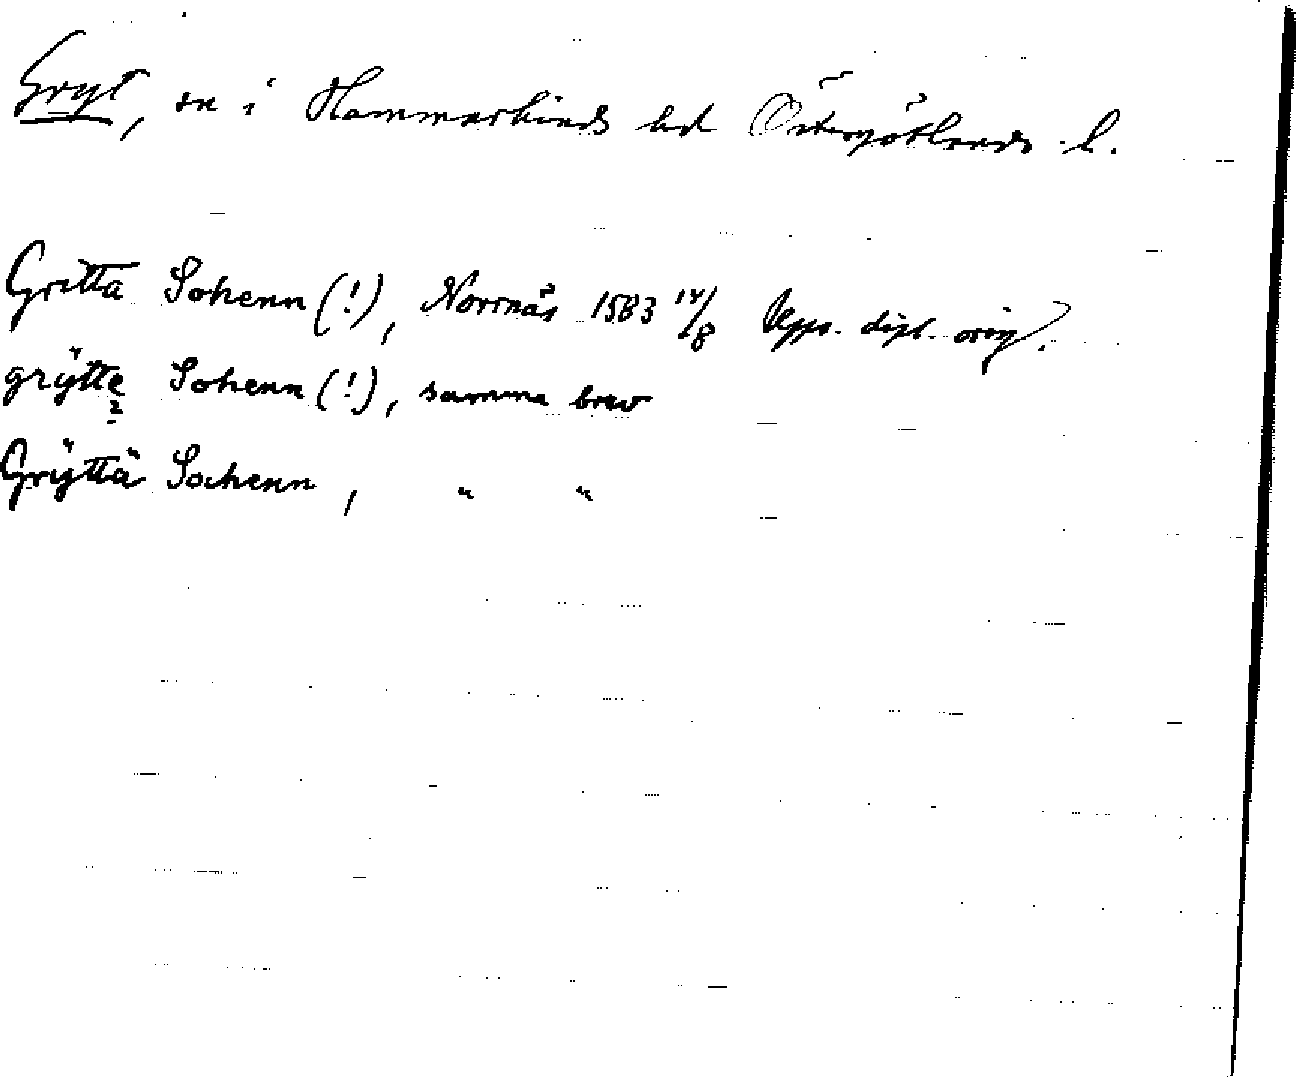 Gryt, sn i Hammarkinds hd Östergötlands l.
Gritta Sohenn (!), Norrnäs 1583 14/8 Upps. dipl. orig.
grÿtte Sohenn (!), samma brev
Grÿttä Sochenn, " "